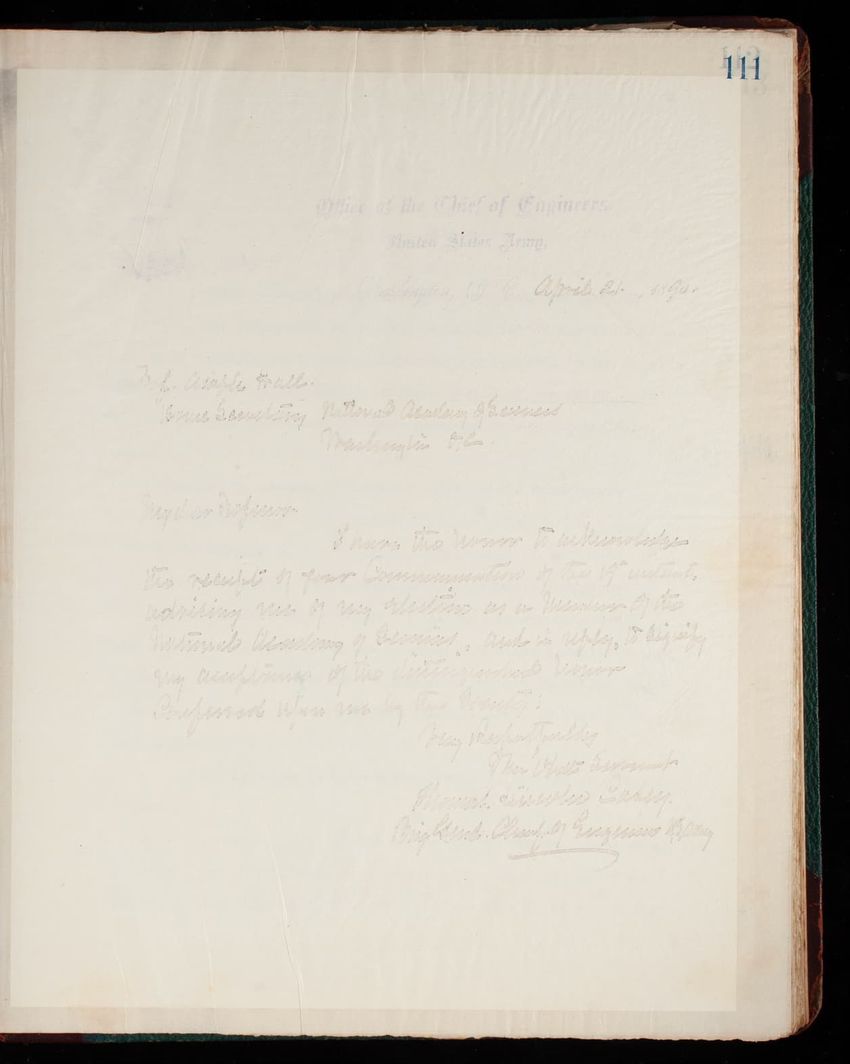 111
Office of the Chief of Engineers,
United States Army,
Washington, D.C. April 21, 1890.
Prof. Asaph Hall.
Home Secretary National Academy of Sciences
Washington D.C.
My dear Professor
I have the honor to acknowledge
the receipt of your Communication of the 19th instant,
advising me of my election as a Member of the
National Academy of Sciences, and in reply, to signify
my acceptance of the distinguished honor
Conferred upon me by the Society:
Very Respectfully
Your Obdt Servant
Thomas Lincoln Casey.
Brig Genl. Chief of Engineers U.S. Army